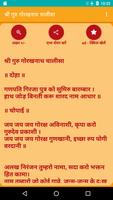 10:33
श्री गुरु गोरखनाथ चालीसा
श्री गुरु गोरखनाथ चालीसा
॥ दोहा ॥
गणपति गिरजा पुत्र को सुमिरु बारम्बार ।
हाथ जोड़ बिनती करू शारद नाम आधार ॥
॥ चोपाई ॥
जय जय जय गोरख अविनासी । कृपा करो गुरुदेव प्रकाशी ॥
जय जय जय गोरक्ष गुणखानी । इच्छा रूप योगी वरदानी ॥
अलख निरंजन तुम्हरो नामा । सदा करो भक्तन हित कामा ॥